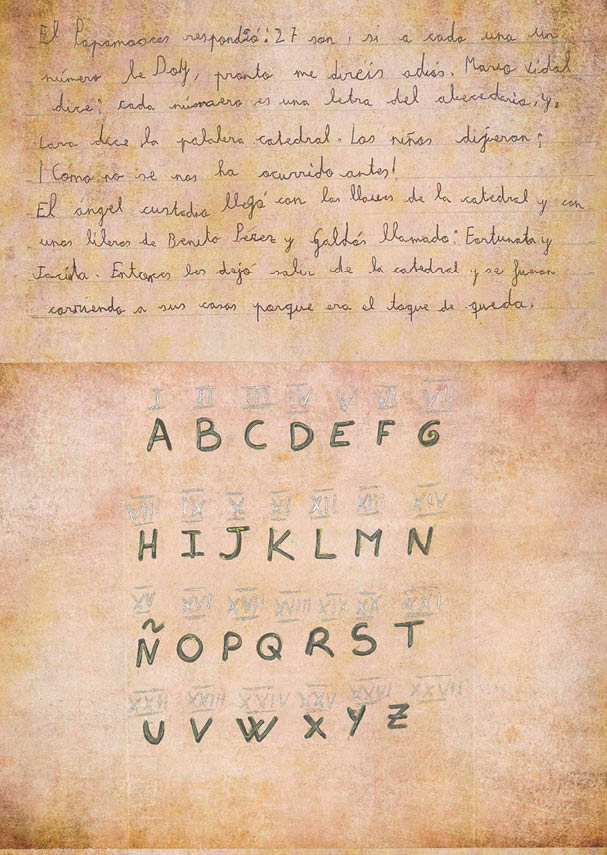 El Papamoscas respondió: 27 son, si a cada una un
numero le Doy, pronto me diréis adiós. Mario Vidal
dice: cada numero es una letra del abecedario, y,
cara dice la palabra catedral. Los niños dijeron:
¡Cómo no se nos ha ocurrido antes!
El ángel custodio llegó con las llaves de la catedral y con
unos libros de Benito Pérez y Galdós llamado: Fortunata y
Jacinta. Entonces los dejó salir de la catedral y se fueron
corriendo a sus casas porque era el toque de queda.
I II III IV V VI VII
A B C D E F G
VIII IX X XI XII XIII XIV
H I J K L M N
XV XVI XVII XVIII XIX XX XXI
Ñ O P Q R S T
XXII XXIII XXIV XXV XXVI XXVII
U V W X Y Z